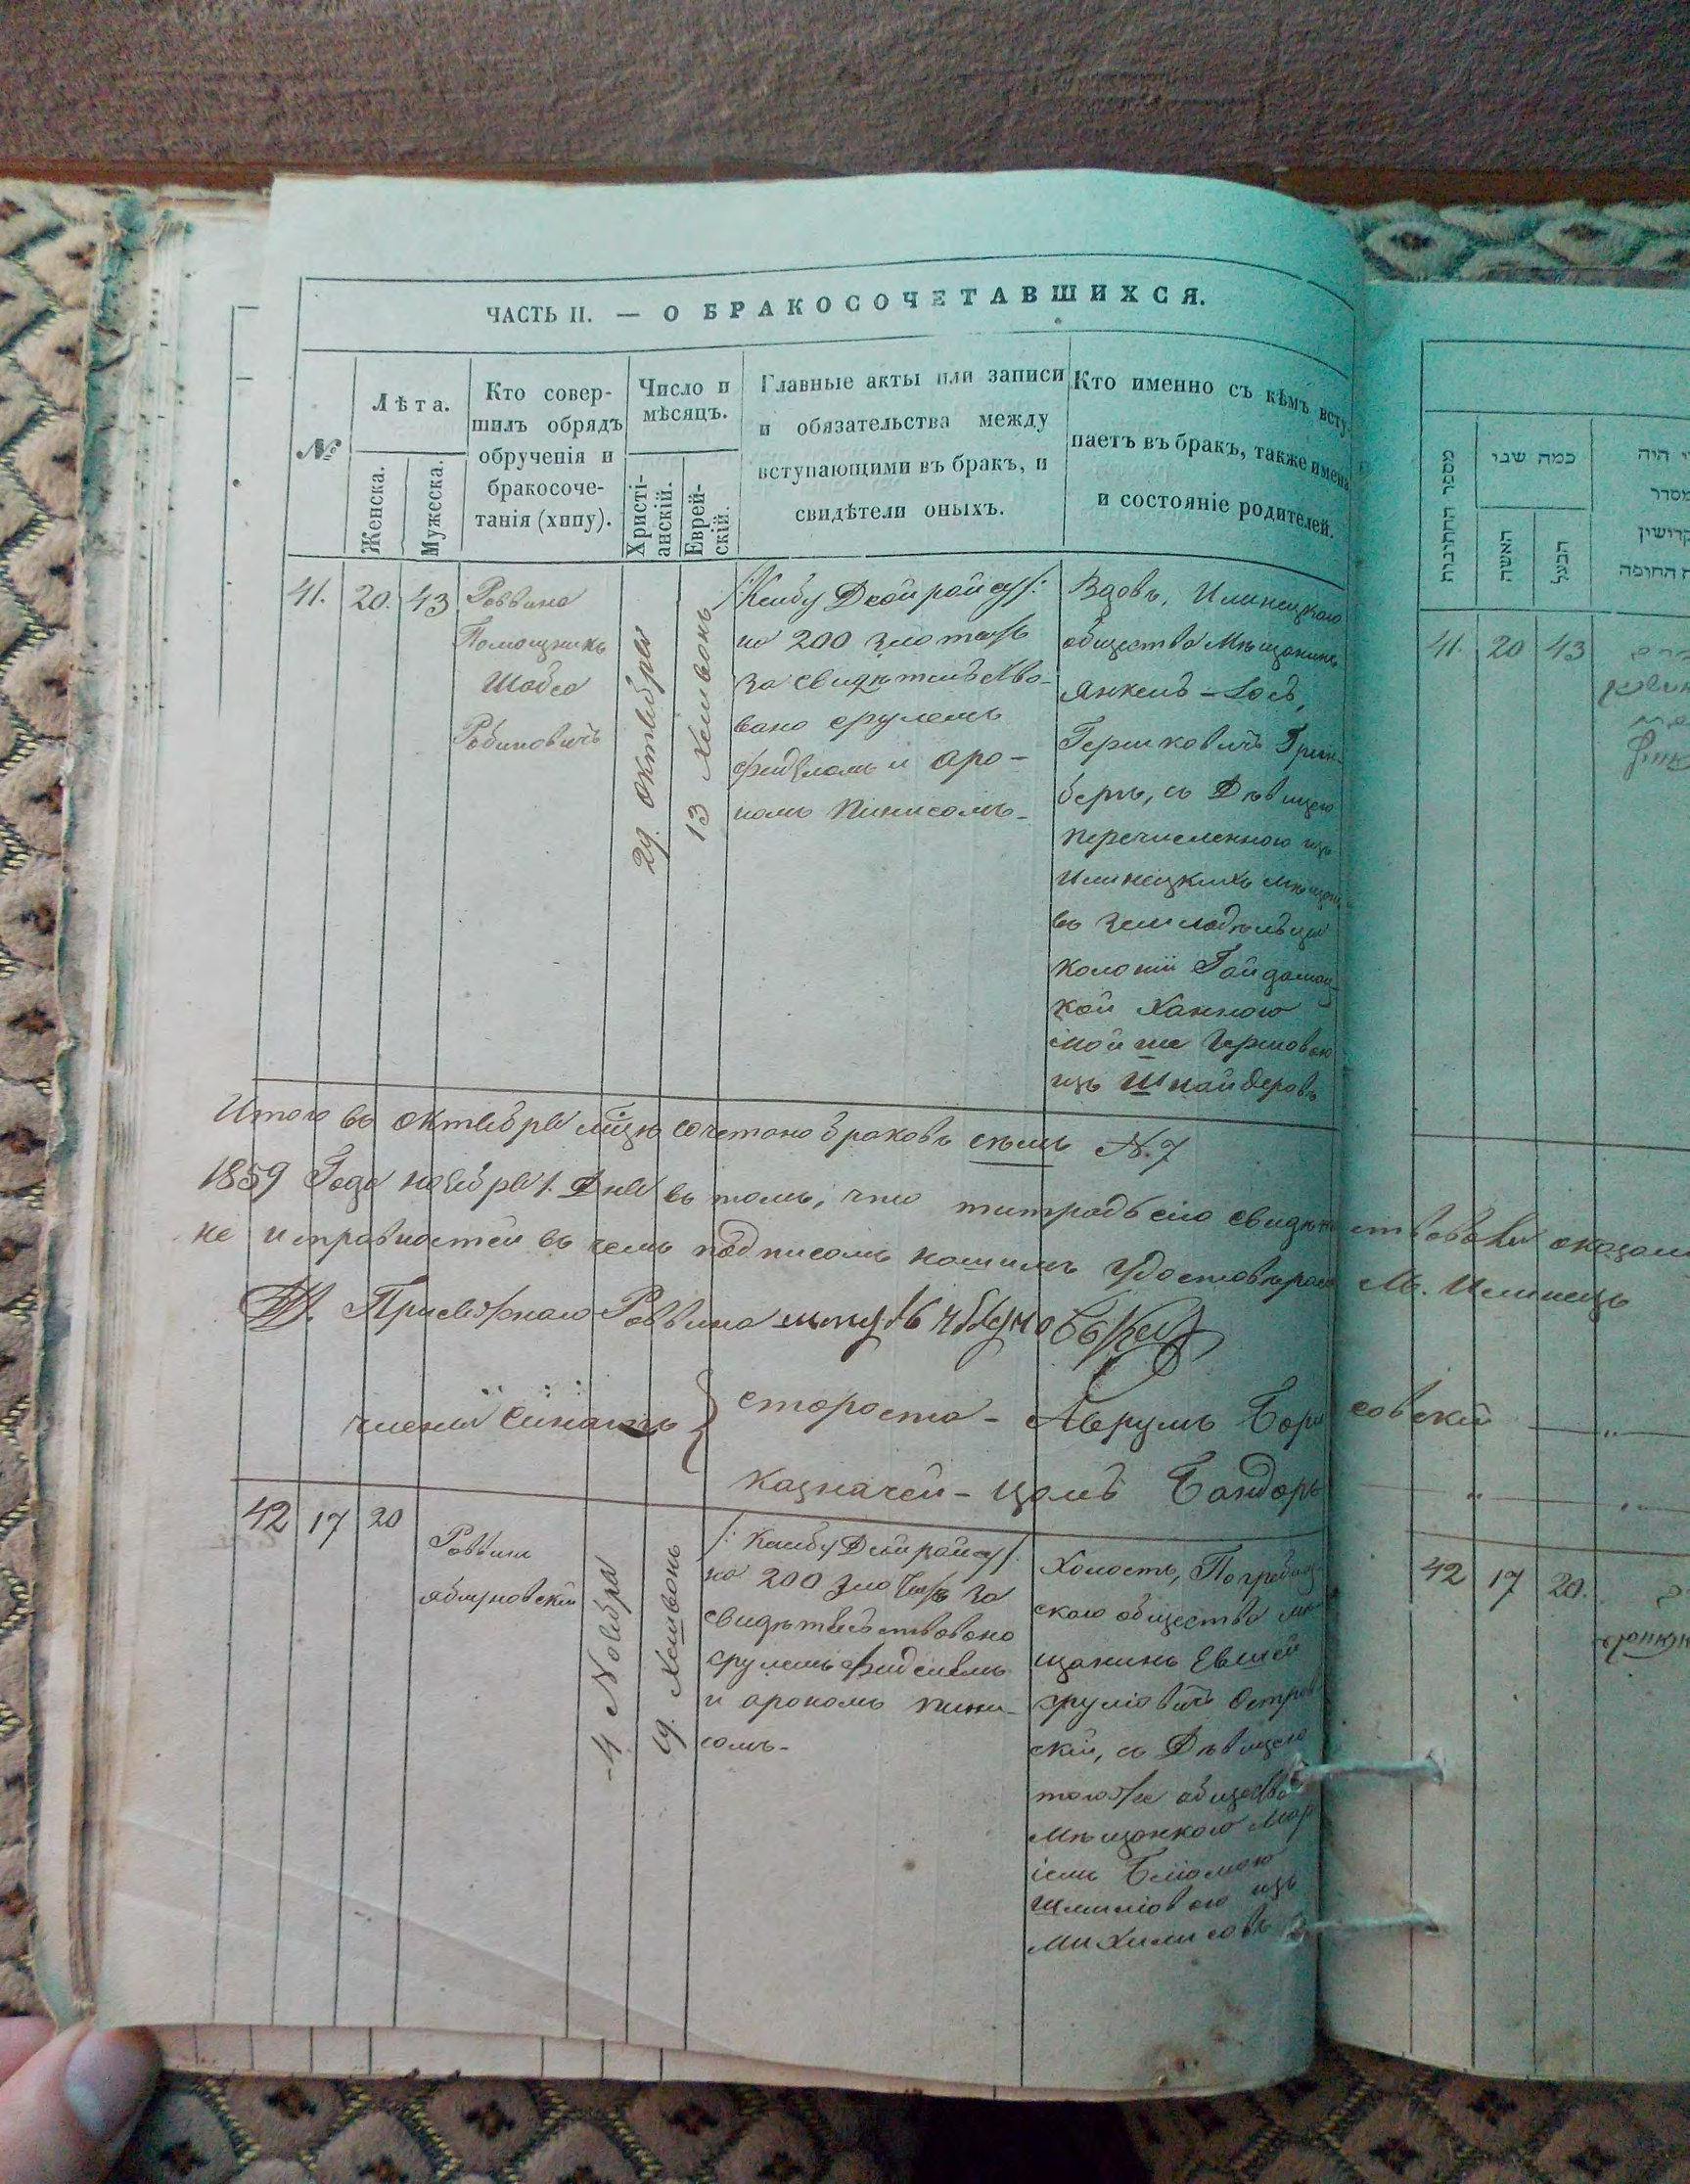 ЧАСТЬ II. — О БРАКОСОЧЕТАВШИХСЯ.
№
Лѣта.
Женска.
Мужеска.
Кто совер-
шилъ обрядъ
обрученія и
бракосоче-
танія (хипу).
Число и
мѣсяцъ.
Христі-
анскій.
Еврей-
скій.
Главные акты или записи
и обязательства между
вступающими въ бракъ, и
свидѣтели оныхъ.
Кто именно съ кѣмъ всту-
паетъ въ бракъ, также имена
и состояніе родителей.
41. 20. 43
Раввина
Помощникъ
Шабса
Рабиновичъ
29. октября
13 Хешвонь
на 200 злотыхъ
засвидѣтельство-
вано срулемъ
и аро-
номъ Пинисомъ
Вдовъ, Илинецкого
общества Мѣщанинъ
Янкель-Іось,
Гершковичъ Грин-
бергъ, съ Дѣвицею
перечисленною изъ
Илинецкихъ Мѣщанъ
въ земледѣльцы
колоніи Гайдамац-
кой Ханною
Мойше Гершовою
изъ Шнайдеровъ
Итого въ октябрѣ мцѣ сочетано браковъ семь N. 7
1859 Года ноября 1. Дня въ томъ, что тетрадь сію свидѣте
не исправностей въ чемъ подписомъ нашимъ удостовѣряемъ М. Илинецъ
Присяжного Раввина
члены Синагоги
староста - Аврумъ Борисовскій
казначей - Цаль Бандоръ
42 17 20
Раввинъ
Яблуновскій
4 Ноября
19. Хешвонь
на 200 злотыхъ за
свидѣтельствовано
срулемъ
и арономъ пини-
сомъ
Холостъ, Погребищ-
ского общества мѣ-
щанинъ Евшей
Сруліовичъ Остров
скій, съ Дѣвицею
того же общества
Мѣщанкою
Шмиліовою изъ
מספר החתיבות
כמה שני
האשה
הבעל
מי היה
מסדר
קדושין
החופה
41. 20 43
42 17 20.